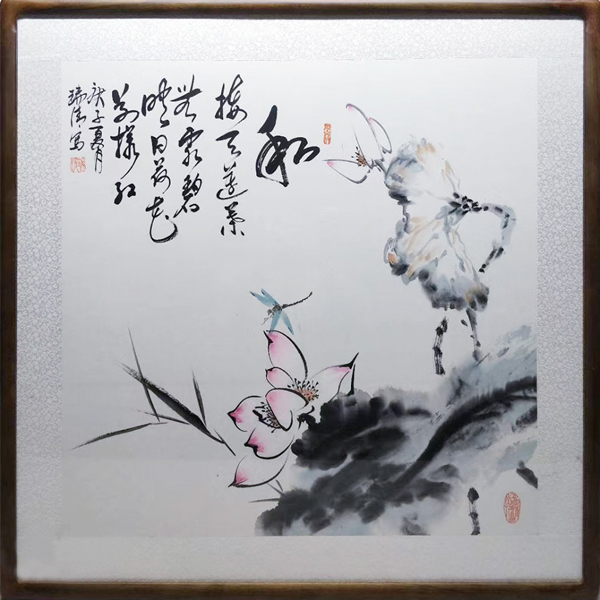 和
接天莲葉
無穷碧
映日荷花
别樣红
庚子夏月
瑞清写